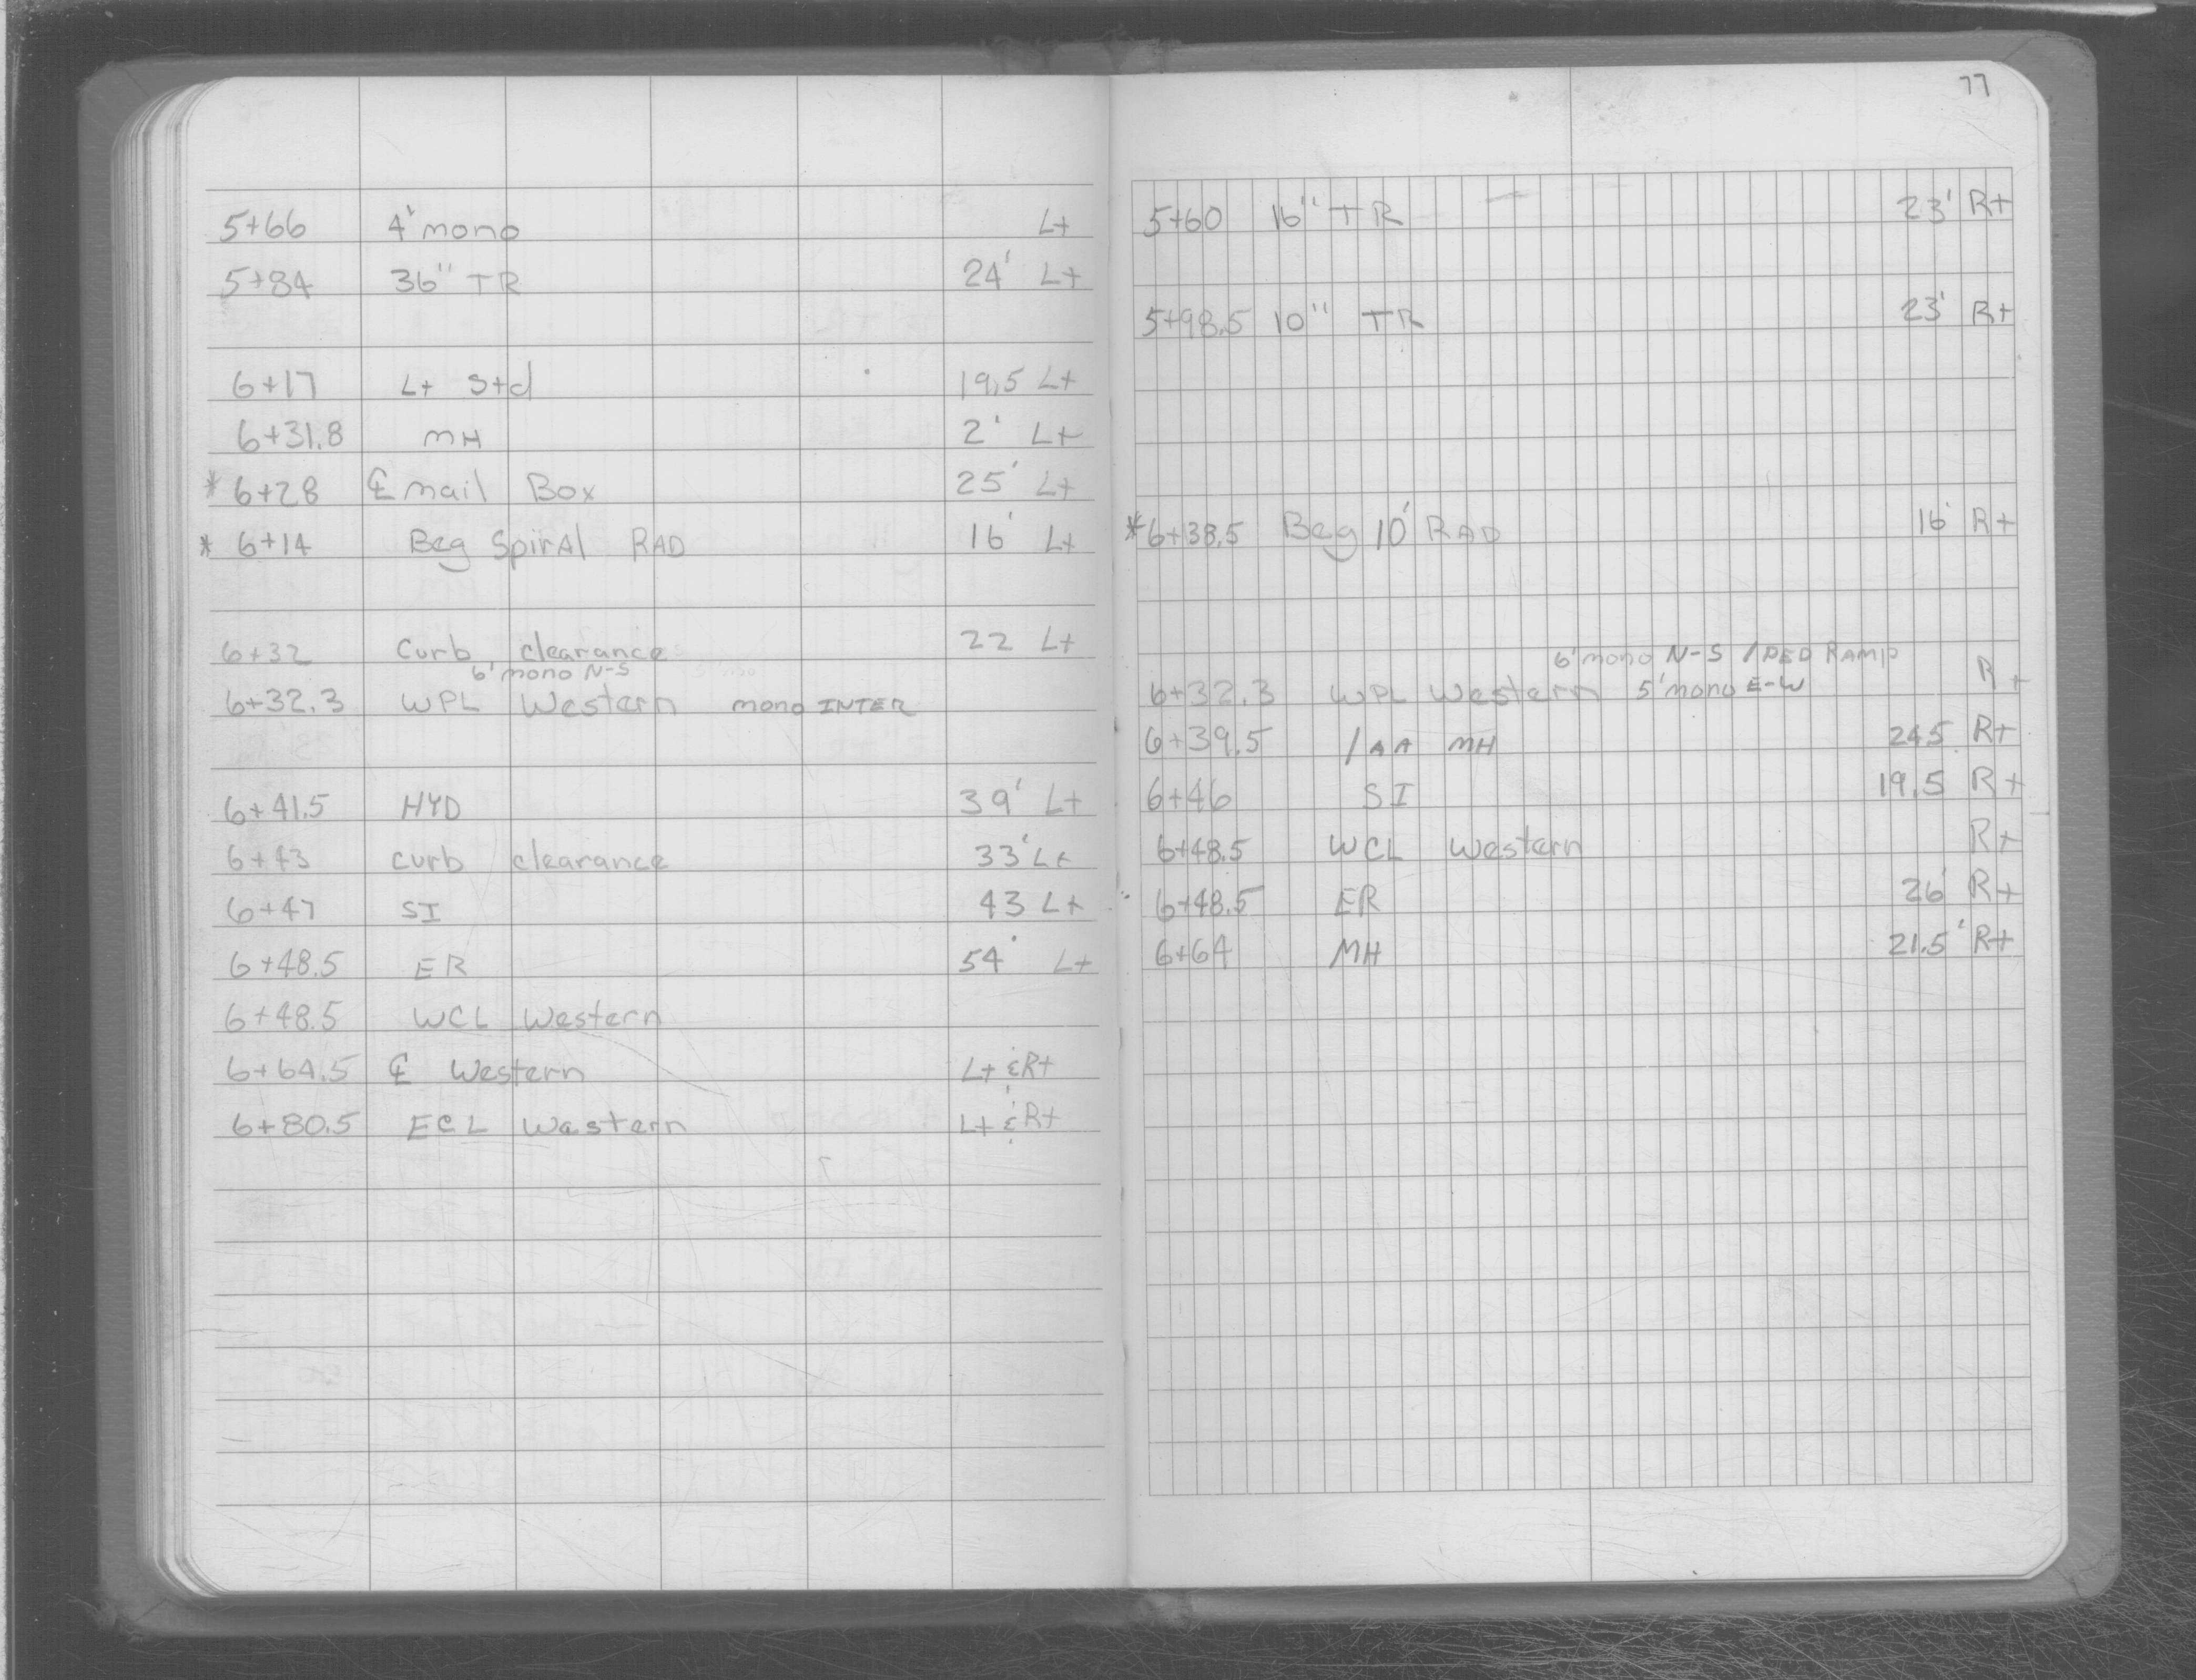 5+66 4' mono Lt
5+84 36" TR 24' Lt
6+17 Lt Std 19.5 Lt
6+31.8 MH 2' Lt
* 6+28 ℄ mail Box 25' Lt
* 6+14 Beg SpirAl RAD 16' Lt
6+32 Curb clearance 22 Lt
6' mono N-S
6+32.3 WPL Western mono INTER
6+41.5 HYD 39' Lt
6+43 curb clearance 33' Lt
6+47 SI 43 Lt
6+48.5 ER 54' Lt
6+48.5 WCL Western
6+64.5 ℄ Western Lt & Rt
6+80.5 ECL Western Lt & Rt
77
5+60 16" TR 23' Rt
5+98.5 10" TR 23' Rt
* 6+38.5 Beg 10' RAD 16' Rt
6' mono N-S / PED RAMP
6+32.3 WPL Western 5' mono E-W Rt
6+39.5 /AA MH 24.5 Rt
6+46 SI 19.5 Rt
6+48.5 WCL Western Rt
6+48.5 ER 26' Rt
6+64 MH 21.5' Rt